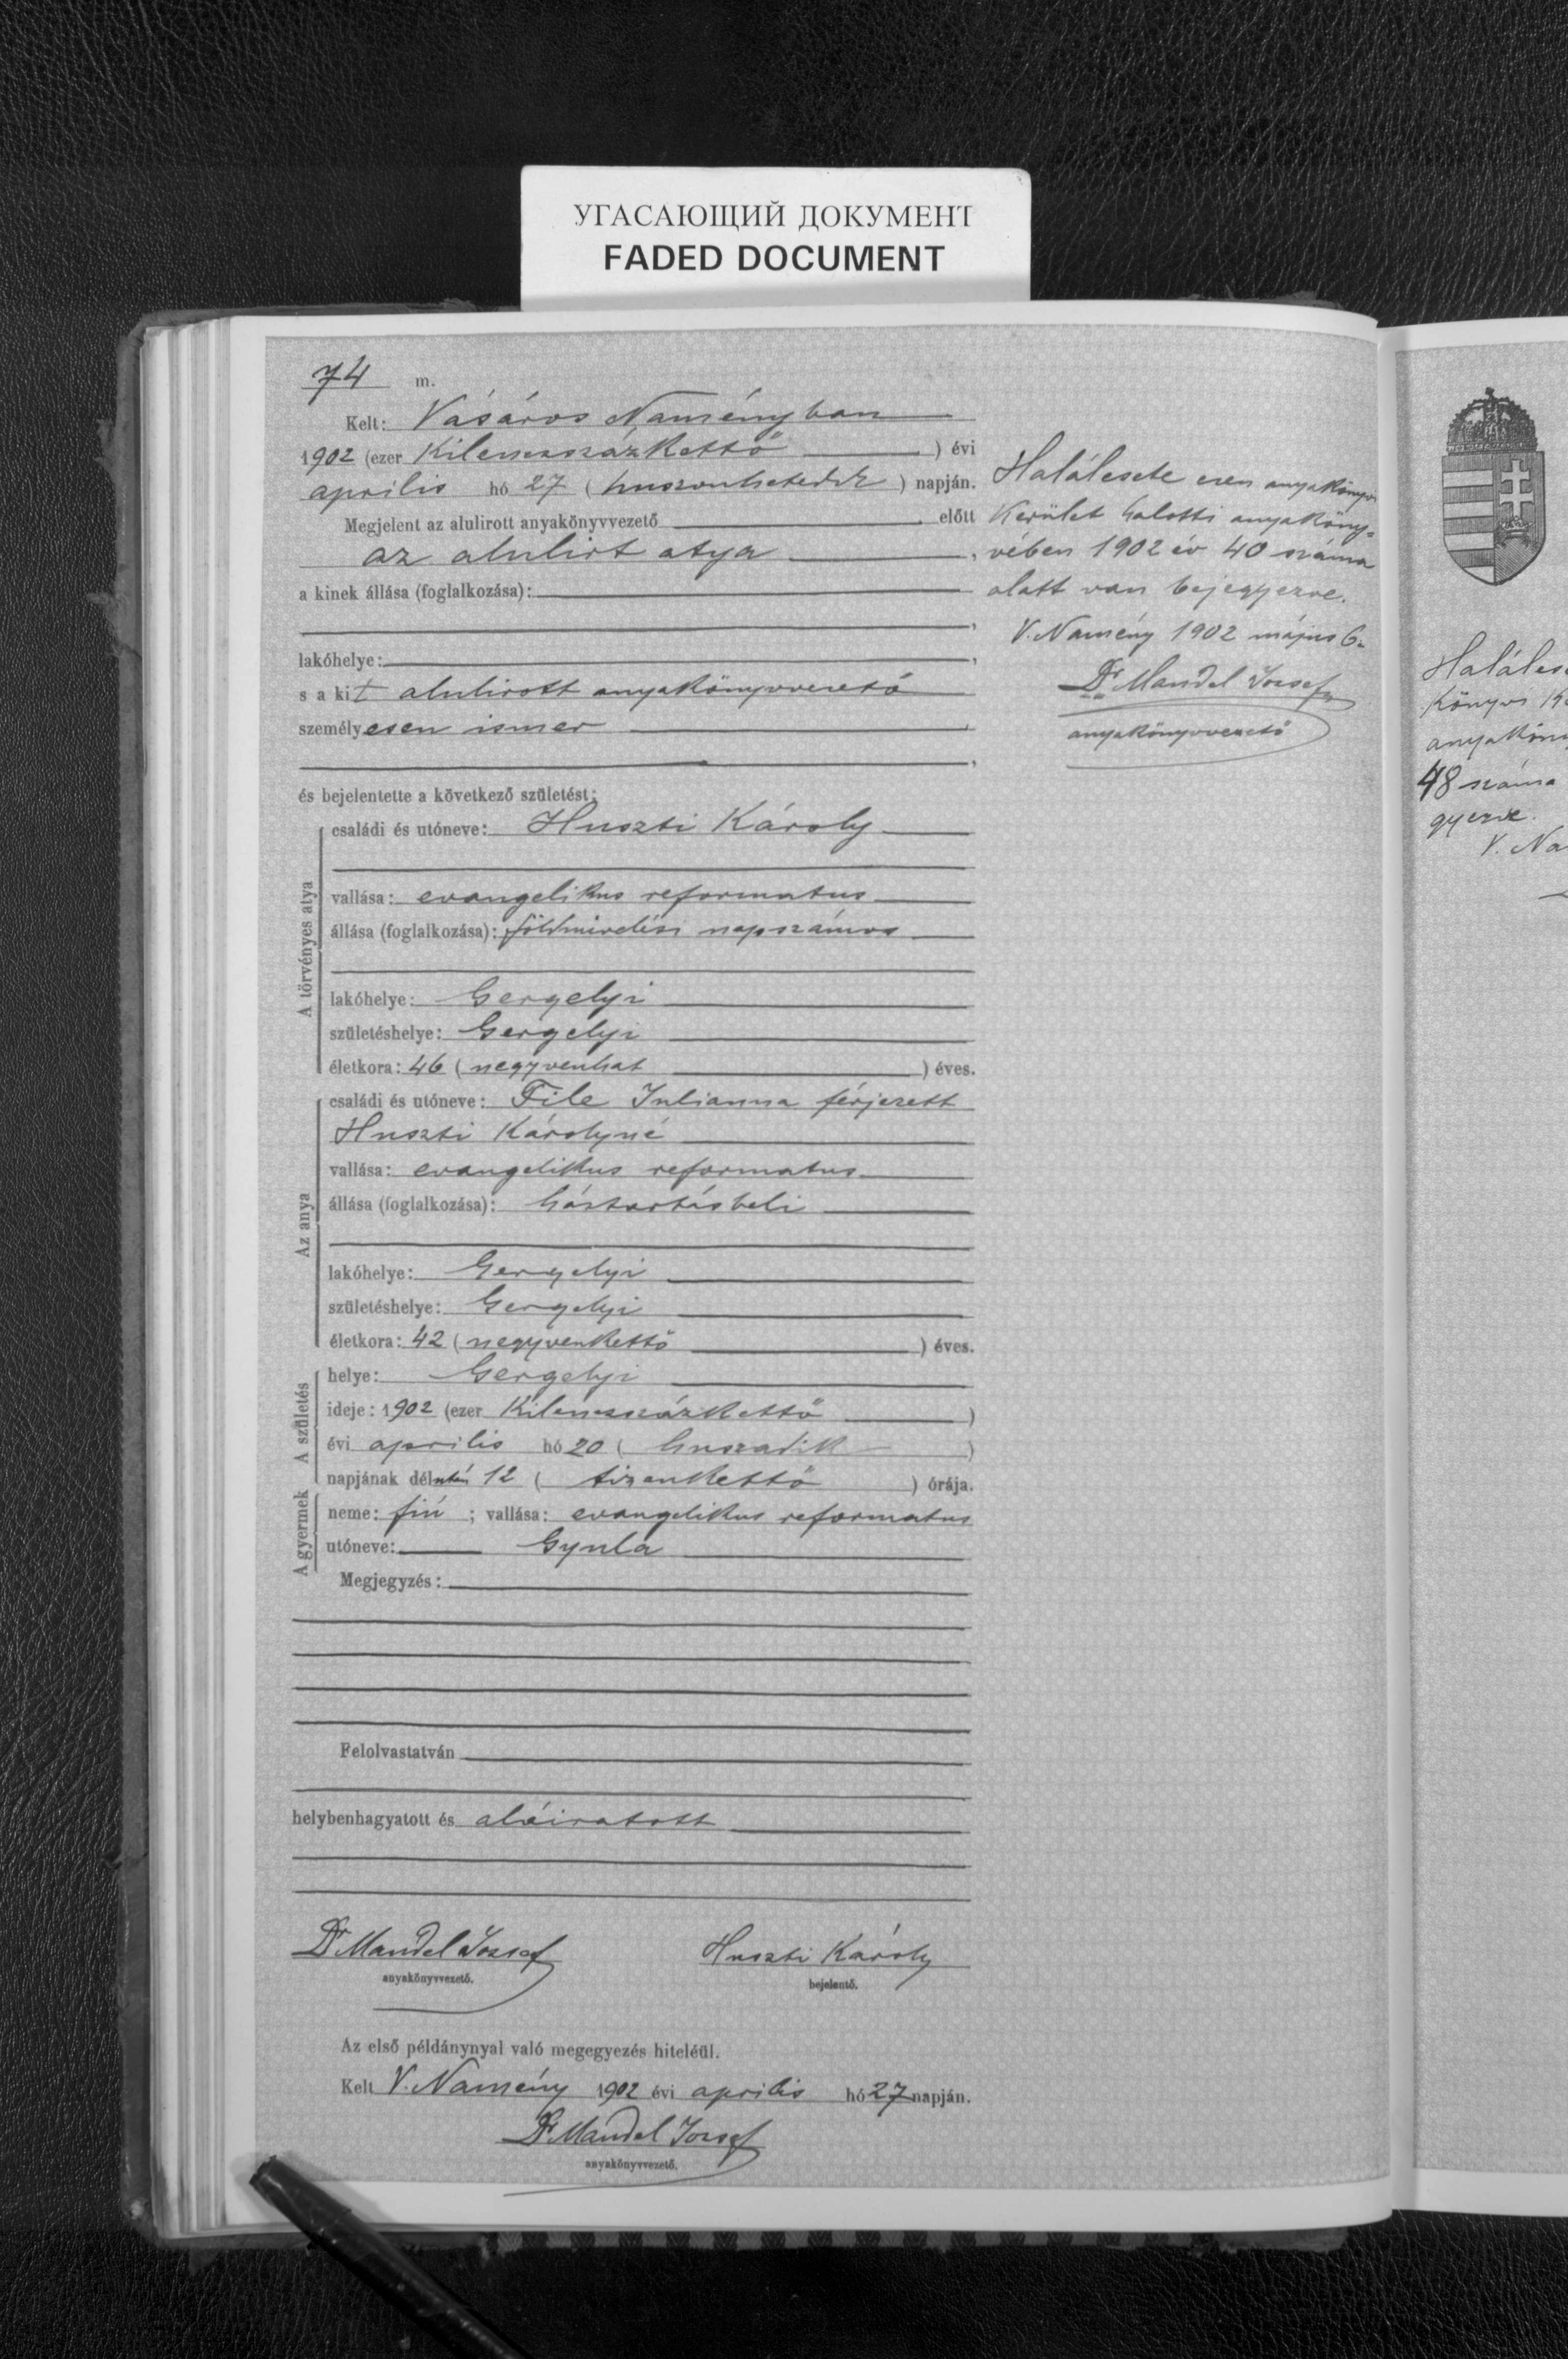 УГАСАЮЩИЙ ДОКУМЕНТ
FADED DOCUMENT
74 m.
Kelt: Vásáros Naményban
1902 (ezer Kilencszázkettő) évi
április hó 27 (huszonhetedik) napján.
Megjelent az alulirott anyakönyvvezető előtt
az alulirt atya,
a kinek állása (foglalkozása):
,
lakóhelye: ,
s a kit alulirott anyakönyvvezető
személyesen ismer,
,
és bejelentette a következő születést:
A törvényes atya
családi és utóneve: Huszti Károly
vallása: evangelikus reformatus
állása (foglalkozása): földmivelési napszámos
lakóhelye: Gergelyi
születéshelye: Gergelyi
életkora: 46 (negyvenhat) éves.
Az anya
családi és utóneve: File Julianna férjezett
Huszti Károlyné
vallása: evangelikus reformatus
állása (foglalkozása): háztartásbeli
lakóhelye: Gergelyi
születéshelye: Gergelyi
életkora: 42 (negyvenkettő) éves.
A születés
helye: Gergelyi
ideje: 1902 (ezer Kilencszázkettő)
évi április hó 20 (huszadik)
napjának délután 12 (tizenkettő) órája.
A gyermek
neme: fiú; vallása: evangelikus reformatus
utóneve: Gyula
Megjegyzés:
Felolvastatván
helybenhagyatott és aláiratott
Dr Mandel József
anyakönyvvezető.
Huszti Károly
bejelentő.
Az első példánynyal való megegyezés hiteléül.
Kelt V. Namény 1902 évi április hó 27 napján.
Dr Mandel József
anyakönyvvezető.
Halálesete ezen anyakönyvi
Kerület halotti anyaköny-
vében 1902 év 40 száma
alatt van bejegyezve.
V. Namény 1902 május 6.
Dr Mandel József
anyakönyvvezető
Haláles
könyvi K
anyaköny
48 száma
gyezve.
V. Na